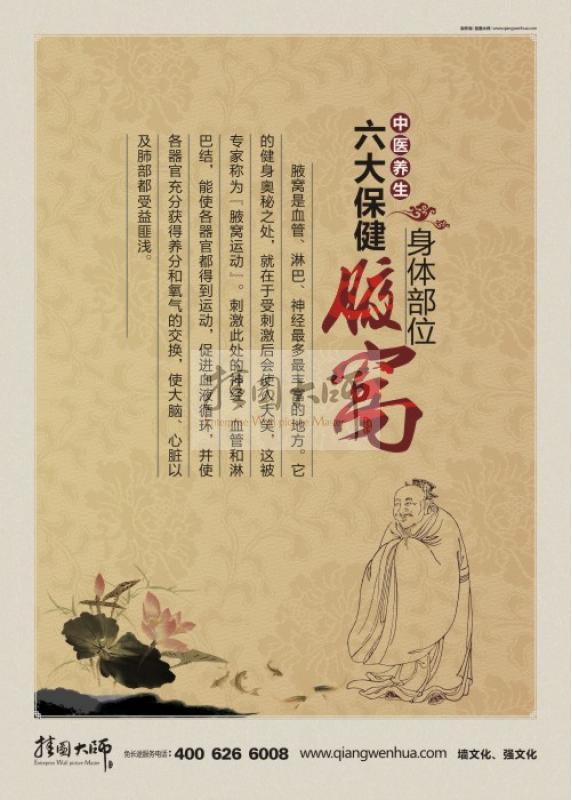 www.qiangwenhua.com
中医养生
身体部位
六大保健
腋窝
腋窝是血管、淋巴、神经最多最丰富的地方。它
的健身奥秘之处，就在于受刺激后会使人大笑，这被
专家称为『腋窝运动』。刺激此处的神经、血管和淋
巴结，能使各器官都得到运动，促进血液循环，并使
各器官充分获得养分和氧气的交换，使大脑、心脏以
及肺部都受益匪浅。
挂图大师
Enterprise Wall picture Master
挂图大师
Enterprise Wall picture Master
免长途服务电话：400 626 6008 www.qiangwenhua.com 墙文化、强文化